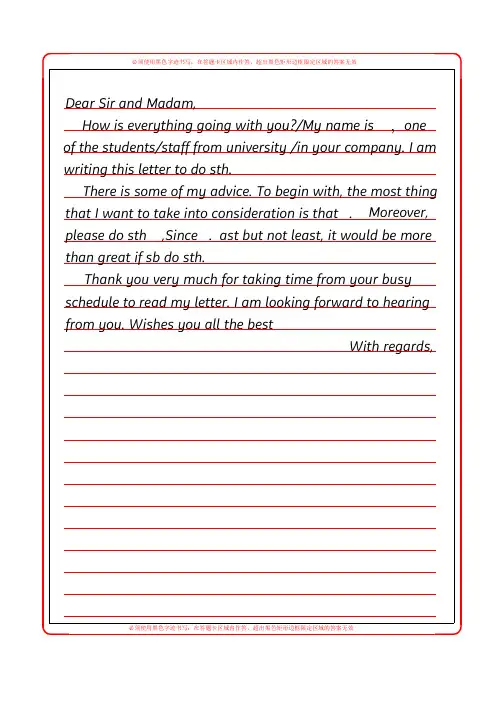 必须使用黑色字迹书写，在答题卡区域内作答，超出黑色矩形边框限定区域的答案无效
Dear Sir and Madam,
How is everything going with you?/My name is , one
of the students/staff from university /in your company. I am
writing this letter to do sth.
There is some of my advice. To begin with, the most thing
that I want to take into consideration is that . Moreover,
please do sth ,Since . ast but not least, it would be more
than great if sb do sth.
Thank you very much for taking time from your busy
schedule to read my letter. I am looking forward to hearing
from you. Wishes you all the best
With regards,
必须使用黑色字迹书写，在答题卡区域内作答，超出黑色矩形边框限定区域的答案无效